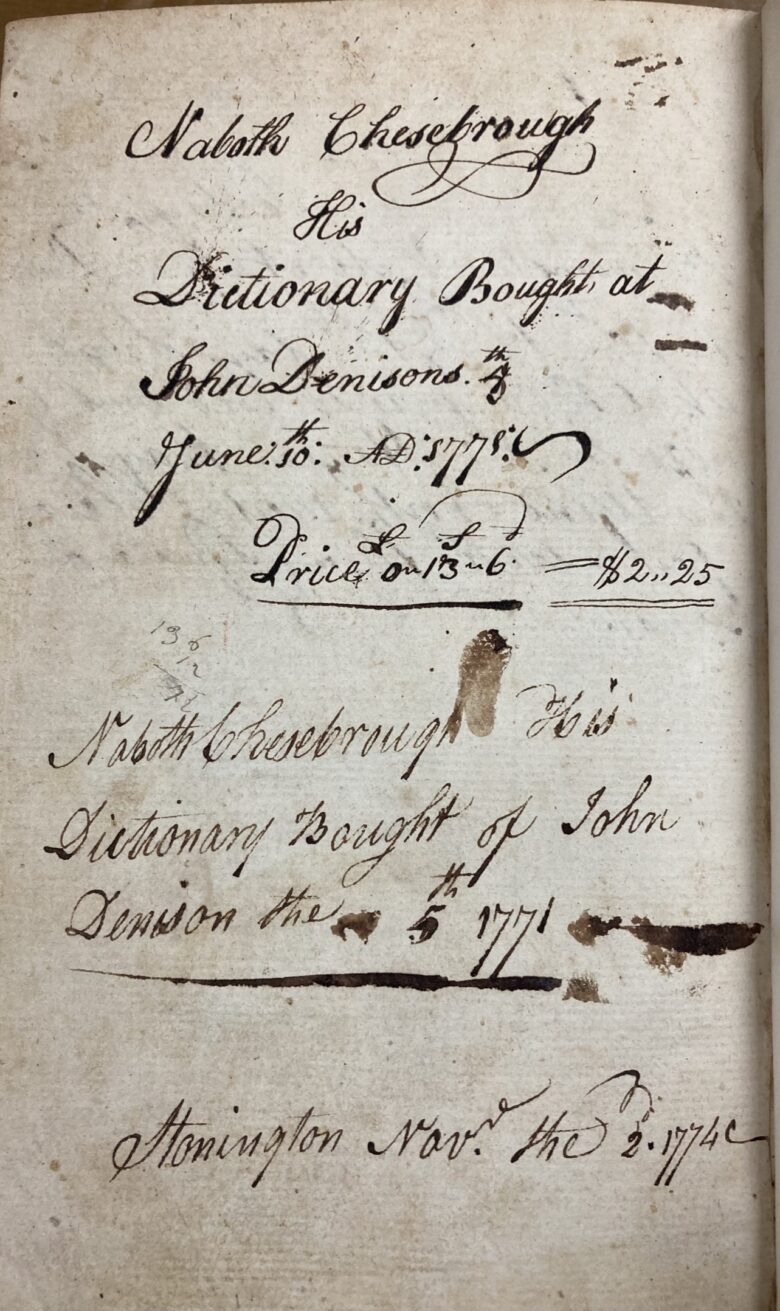 Naboth Chesebrough
His
Dictionary Bought at
John Denisons.
June. 10th: AD: 1771.
£ S d
Price 0 " 13 " 6 = $2,,25
13 6
12
Naboth Chesebrough His
Dictionary Bought of John
Denison the 5th 1771
Stonington Nov.r the 2d. 1774